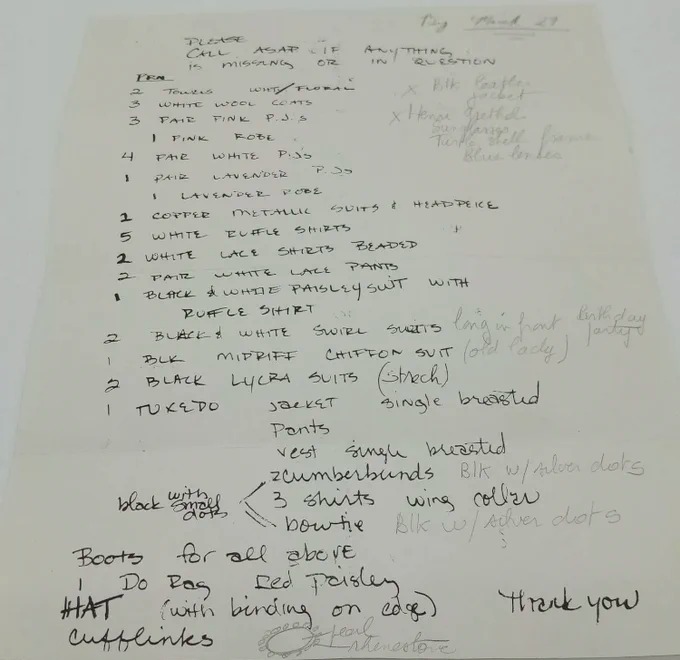 Pkg March 29
PLEASE
CALL ASAP IF ANYTHING
IS MISSING OR IN QUESTION
2 TOWELS WHT/FLORAL
3 WHITE WOOL COATS
3 PAIR PINK P.J.S
1 PINK ROBE
4 PAIR WHITE P.J'S
1 PAIR LAVENDER P.JS
1 LAVENDER ROBE
2 COPPER METALLIC SUITS & HEADPEICE
5 WHITE RUFFLE SHIRTS
2 WHITE LACE SHIRTS BEADED
2 PAIR WHITE LACE PANTS
1 BLACK & WHITE PAISLEY SUIT WITH
RUFFLE SHIRT
2 BLACK & WHITE SWIRL SUITS long in front birthday party
1 BLK MIDRIFF CHIFFON SUIT (old lady)
2 BLACK LYCRA SUITS (strech)
1 TUXEDO JACKET single breasted
Pants
vest single breasted
2 cumberbunds Blk w/silver dots
black with small dots
3 shirts wing coller
bowtie Blk w/silver dots
Boots for all above
1 Do Rag Red Paisley
HAT (with binding on edge) Thank you
cufflinks pearl
rhinestone
x Blk leather
jacket
x
sunglasses
Turtle shell frame
Blue lenses